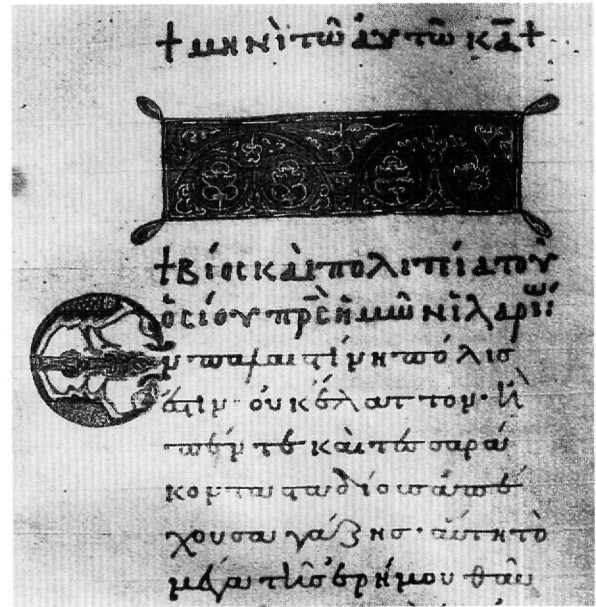 + μηνὶ τῶ ἀυτῶ κᾱ +
+ Βίος καὶ πολιτεία τοῦ
ὁσίου πρ̅ς ἡμῶν ἱλαρίω:
ν παλαιστίνη πόλις
ἐστίν· οὐκ ἔλαττον· ἢ
πέντε καὶ τεσσαρά
κοντα σταδίοις ἀπέ
χουσα γάζης· αὕτη τὸ
μέγα τῆς ἐρήμου θαῦ